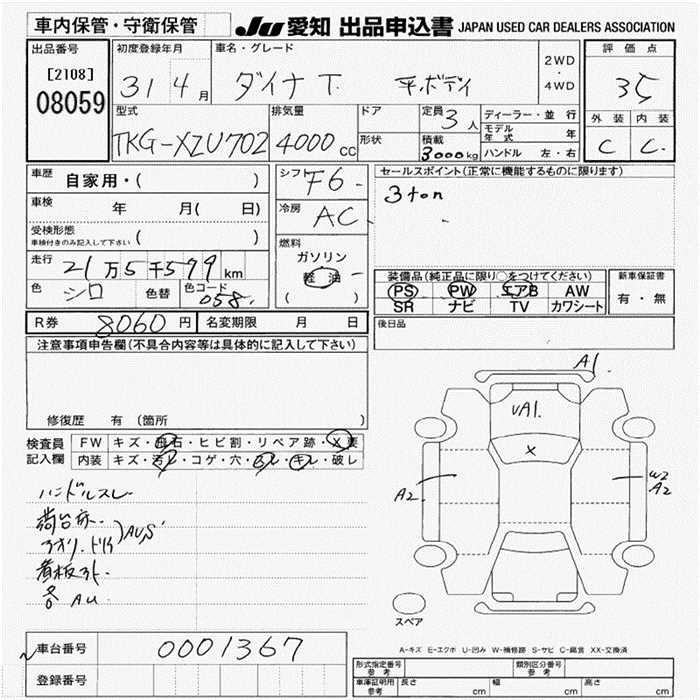 車内保管・守衛保管
JU 愛知 出品申込書 JAPAN USED CAR DEALERS ASSOCIATION
出品番号 [2108] 08059
初度登録年月 31 4月
車名・グレード ダイナ T. 平ボデイ
2WD・4WD
評価点 3.5
外装 C 内装 C.
型式 TKG-XZU702
排気量 4000 CC
ドア
形状
定員 3 人
積載 3000kg
ディーラー・並行
モデル年式 年
ハンドル 左・右
車歴 自家用・( )
車検 年 月( 日)
受検形態 車検付きのみ記入して下さい ( )
走行 21万5千579 km
色 シロ 色替 色コード 058.
シフト F6
冷房 AC
燃料 ガソリン 軽油 ( )
セールスポイント(正常に機能するものに限ります)
3ton
装備品(純正品に限り○をつけてください)
PS PW エアB AW
SR ナビ TV カワシート
新車保証書 有・無
R券 8060円 名変期限 月 日
後日品
注意事項申告欄(不具合内容等は具体的に記入して下さい)
修復歴 有 (箇所 )
検査員記入欄
FW キズ・飛石・ヒビ割・リペア跡・X要
内装 キズ・汚レ・コゲ・穴・スレ・キレ・破レ
ハンドルスレ
荷台床.
アオリ.トリイ )AU,S
看板外ト.
各 AU
A1.
UA1.
X
A2.
W2
A2
スペア
A-キズ E-エクボ U-凹み W-補修跡 S-サビ C-腐食 XX-交換済
車台番号 0001367
登録番号
形式指定番号 参考
類別区分番号 参考
車庫証明用 参考 長さ cm 幅 cm 高さ cm